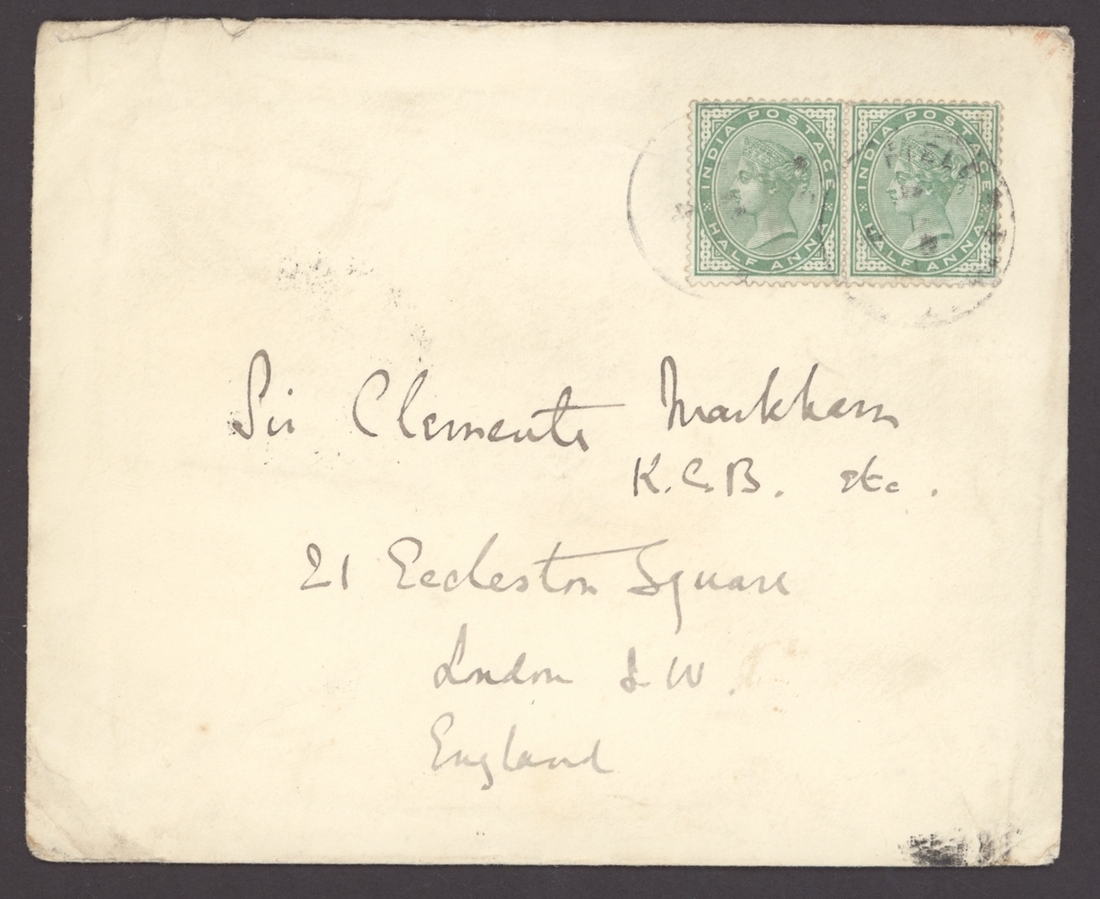 INDIA POSTAGE
HALF ANNA
INDIA POSTAGE
HALF ANNA
FIELD
Sir Clements Markham
K.C.B. etc.
21 Eccleston Square
London S.W.
England